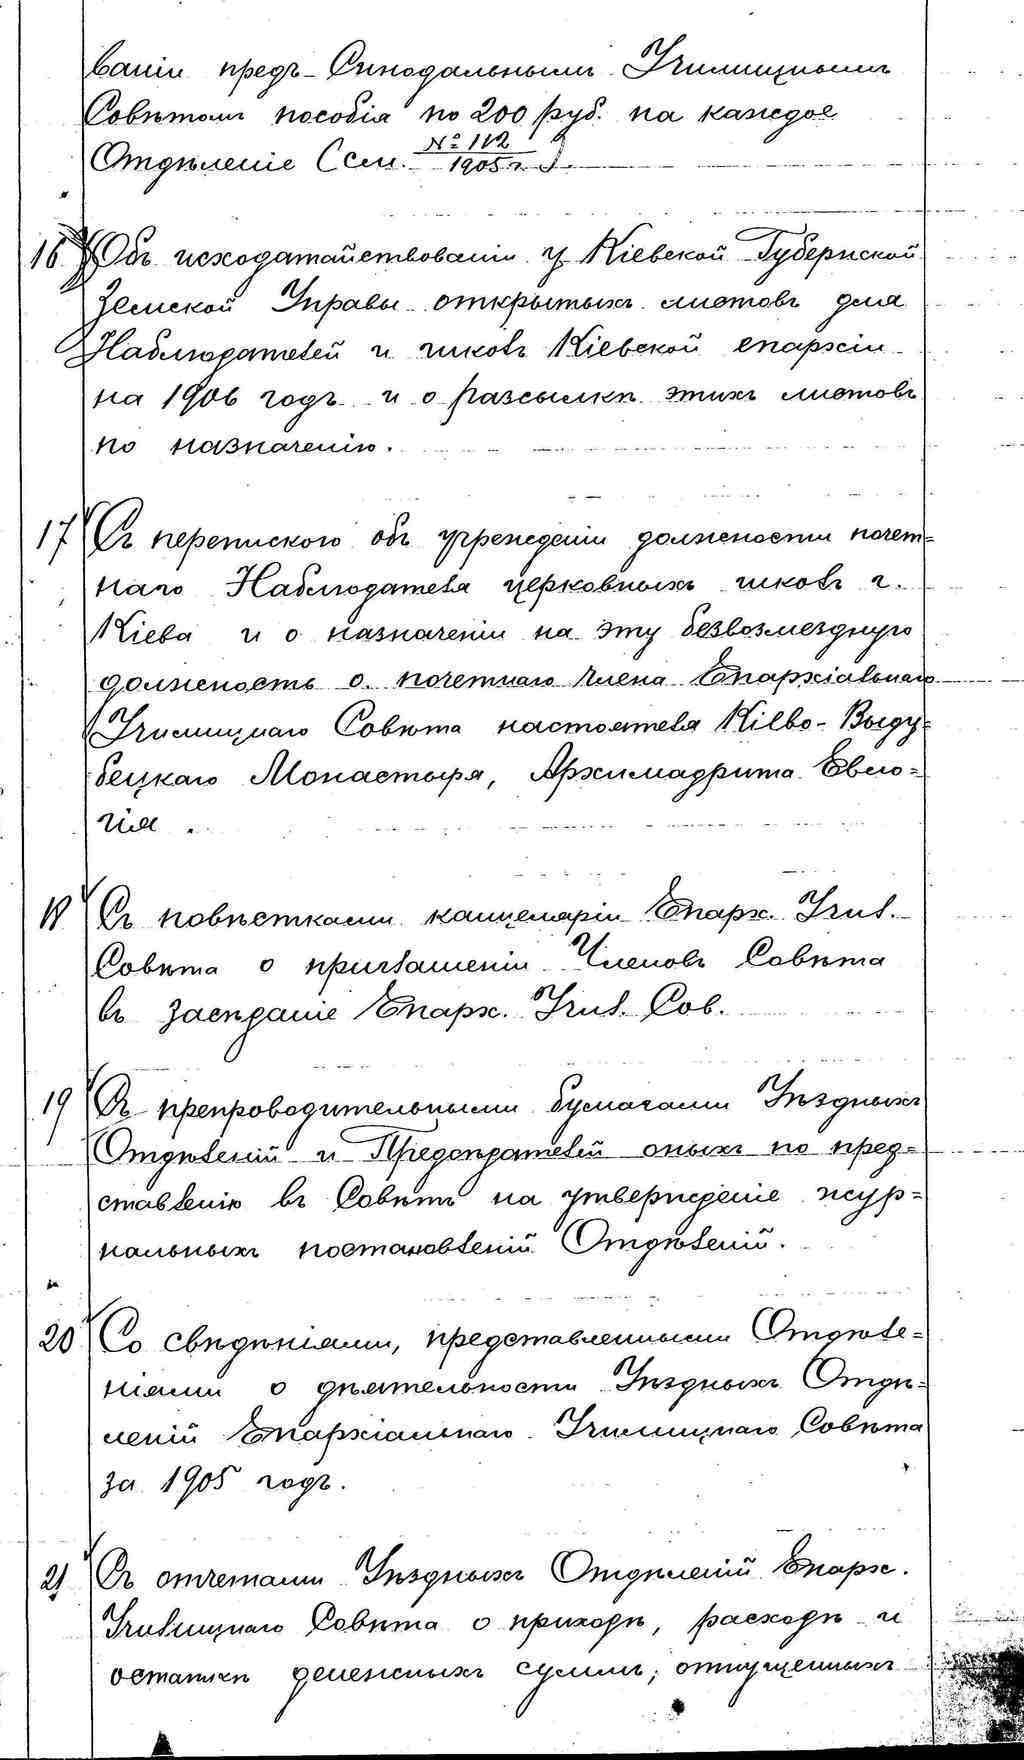 ваніи предъ Синодальнымъ Училищнымъ
Совѣтомъ пособія по 200 руб. на каждое
Отдѣленіе (см. № 112 / 1905 г.)
16 Объ исходатайствованіи у Кіевской Губернской
Земской Управы открытыхъ листовъ для
Наблюдателей и школъ Кіевской епархіи
на 1906 годъ и о разсылкѣ этихъ листовъ
по назначенію.
17 Съ перепискою объ учрежденіи должности почет=
наго Наблюдателя церковныхъ школъ г.
Кіева и о назначеніи на эту безвозмездную
должность о. почетнаго Члена Епархіальнаго
Училищнаго Совѣта настоятеля Кіево-Выду=
бецкаго Монастыря, Архимадрита Евло=
гія.
18 Съ повѣстками канцеляріи Епарх. Учил.
Совѣта о приглашеніи Членовъ Совѣта
въ засѣданіе Епарх. Учил. Сов.
19 Съ препроводительными бумагами Уѣздныхъ
Отдѣленій и Предсѣдателей оныхъ по пред=
ставленію въ Совѣтъ на утвержденіе жур=
нальныхъ постановленій Отдѣленій.
20 Со свѣдѣніями, представленными Отдѣле=
ніями о дѣятельности Уѣздныхъ Отдѣ=
леній Епархіальнаго Училищнаго Совѣта
за 1905 годъ.
21 Съ отчетами Уѣздныхъ Отдѣленій Епарх.
Училищнаго Совѣта о приходѣ, расходѣ и
остаткѣ денежныхъ суммъ, отпущенныхъ